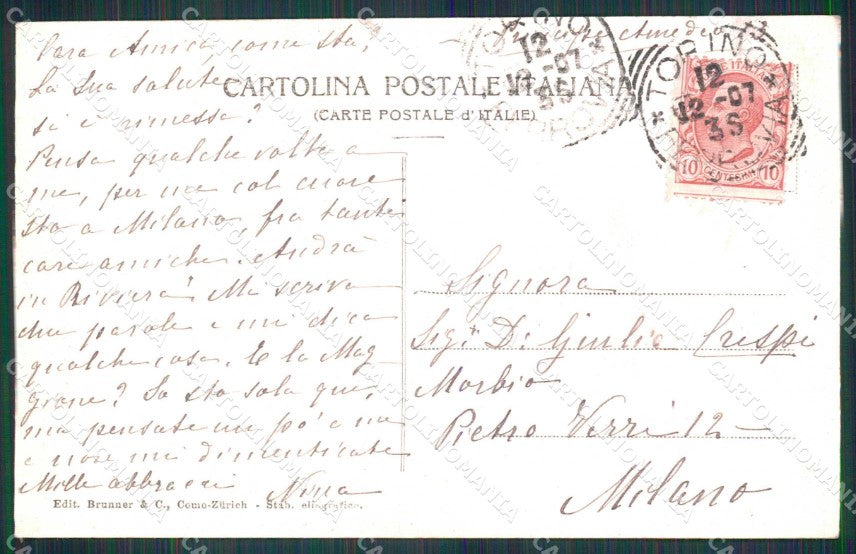 Cara Amica, come sta,
La Sua salute
si è rimessa?
Pensa qualche volta a
me, per me col cuore
sto a Milano, fra tante
care amiche. Andrà
in Riviera? Mi scriva
due parole e mi dica
qualche cosa. E la Mag
giane? Io sto sola qui,
ma pensate un po' a me
e non mi dimenticate
Mille abbracci
Nina
Amedeo 12
CARTOLINA POSTALE ITALIANA
(CARTE POSTALE d'ITALIE)
TORINO
12
12 -07
3S
FERROVIA
TORINO
12
12 -07
3S
FERROVIA
10 CENTESIMI 10
Signora
Sig.ra D. Giulia Crespi
Morbio
Pietro Verri 12
Milano
Edit. Brunner & C., Como-Zürich - Stab. eliografico.
CARTOLINOMANIA